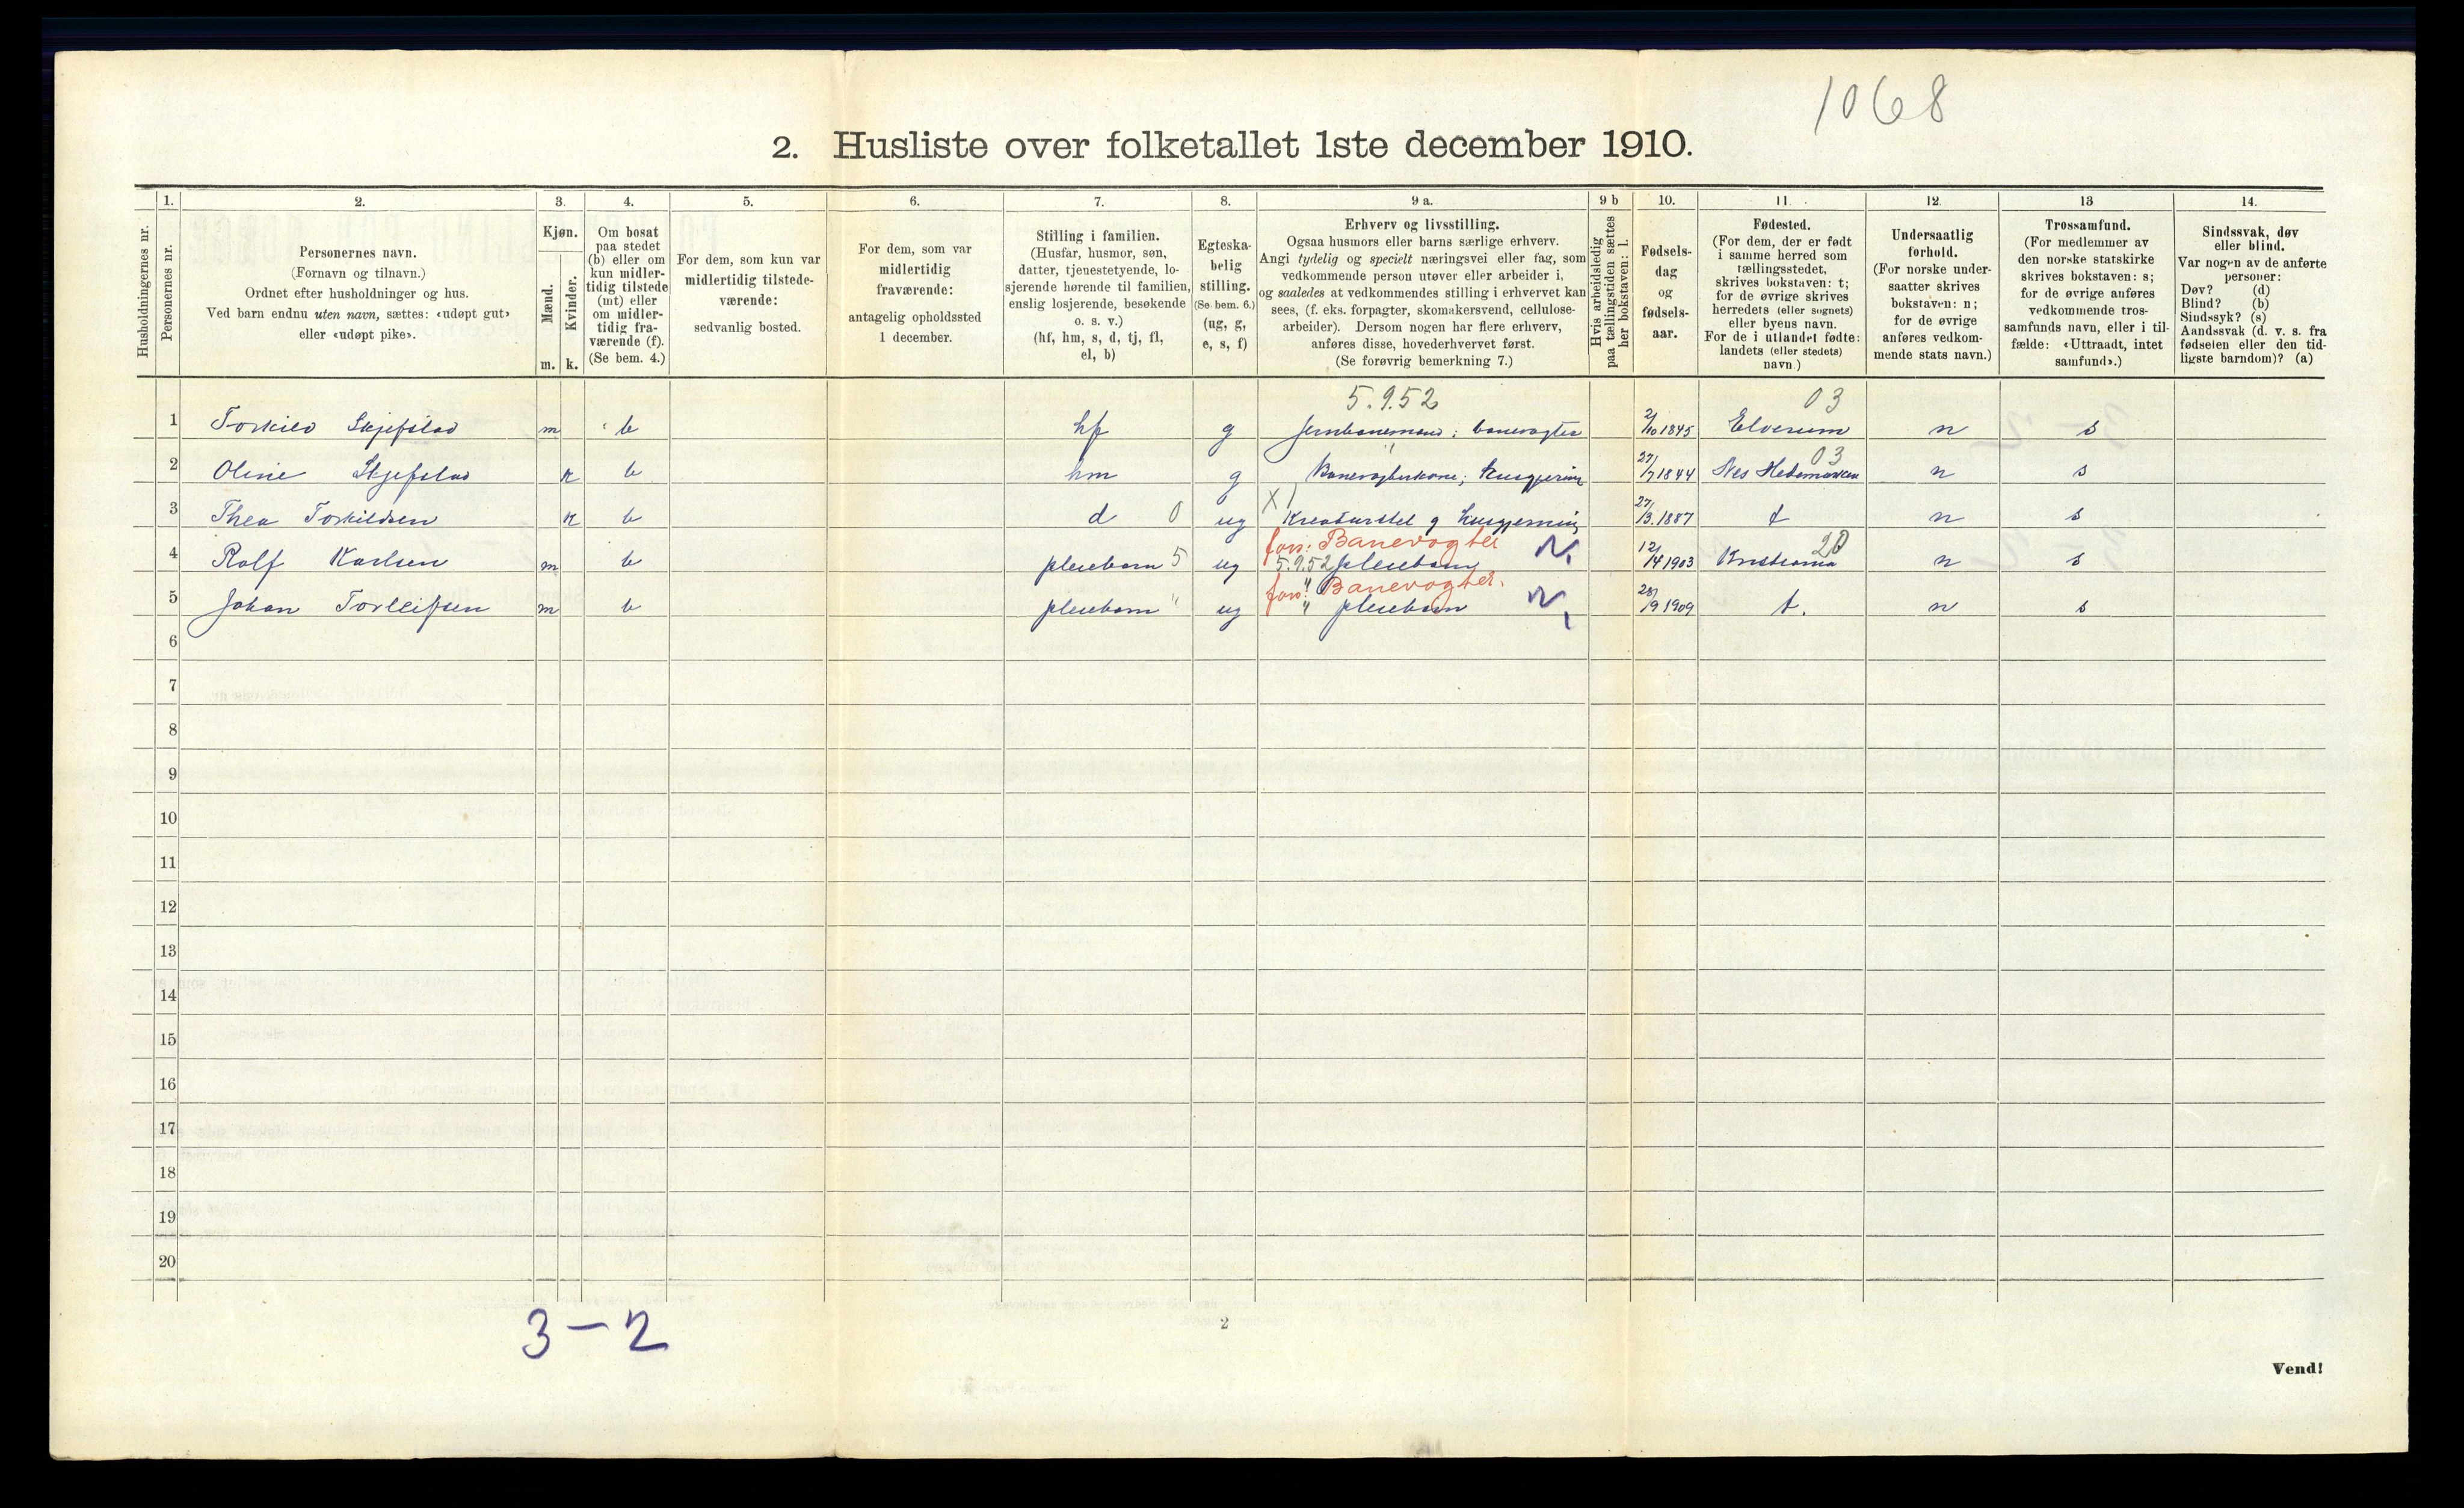 1068
2. Husliste over folketallet 1ste december 1910.
Husholdningernes nr.
1. Personernes nr.
2. Personernes navn. (Fornavn og tilnavn.) Ordnet efter husholdninger og hus. Ved barn endnu uten navn, sættes: «udøpt gut» eller «udøpt pike».
3. Kjøn. Mænd. m. Kvinder. k.
4. Om bosat paa stedet (b) eller om kun midlertidig tilstede (mt) eller om midlertidig fraværende (f). (Se bem. 4.)
5. For dem, som kun var midlertidig tilstedeværende: sedvanlig bosted.
6. For dem, som var midlertidig fraværende: antagelig opholdssted 1 december.
7. Stilling i familien. (Husfar, husmor, søn, datter, tjenestetyende, losjerende hørende til familien, enslig losjerende, besøkende o. s. v.) (hf, hm, s, d, tj, fl, el, b)
8. Egteskabelig stilling. (Se bem. 6.) (ug, g, e, s, f)
9 a. Erhverv og livsstilling. Ogsaa husmors eller barns særlige erhverv. Angi tydelig og specielt næringsvei eller fag, som vedkommende person utøver eller arbeider i, og saaledes at vedkommendes stilling i erhvervet kan sees, (f. eks. forpagter, skomakersvend, cellulose-arbeider). Dersom nogen har flere erhverv, anføres disse, hovederhvervet først. (Se forøvrig bemerkning 7.)
9 b Hvis arbeidsledig paa tællingstiden sættes her bokstaven: l.
10. Fødselsdag og fødselsaar.
11. Fødested. (For dem, der er født i samme herred som tællingsstedet, skrives bokstaven: t; for de øvrige skrives herredets (eller sognets) eller byens navn. For de i utlandet fødte: landets (eller stedets) navn.)
12. Undersaatlig forhold. (For norske undersaatter skrives bokstaven: n; for de øvrige anføres vedkommende stats navn.)
13 Trossamfund. (For medlemmer av den norske statskirke skrives bokstaven: s; for de øvrige anføres vedkommende trossamfunds navn, eller i tilfælde: «Uttraadt, intet samfund».)
14. Sindssvak, døv eller blind. Var nogen av de anførte personer: Døv? (d) Blind? (b) Sindssyk? (s) Aandssvak (d. v. s. fra fødselen eller den tidligste barndom)? (a)
5.9.52 03
1 Torkild Skjefstad m b hf g Jernbanemand; banevogter 2/10 1845 Elverum n s
03
2 Oline Skjefstad k b hm g Banevogterkone; husgjerning 27/7 1844 Nes Hedemarken n s
3 Thea Torkildsen k b d 0 ug Kreaturstel og husgjerning 27/3. 1887 t n s
fors: Banevogter 20
4 Rolf Karlsen m b pleiebarn 5 ug 5.9.52 pleiebarn 12/4 1903 Kristiania n s
fors: Banevogter.
5 Johan Torleifsen m b pleiebarn " ug " pleiebarn 28/9 1909 t. n s
6
7
8
9
10
11
12
13
14
15
16
17
18
19
20
3 - 2
2
Vend!